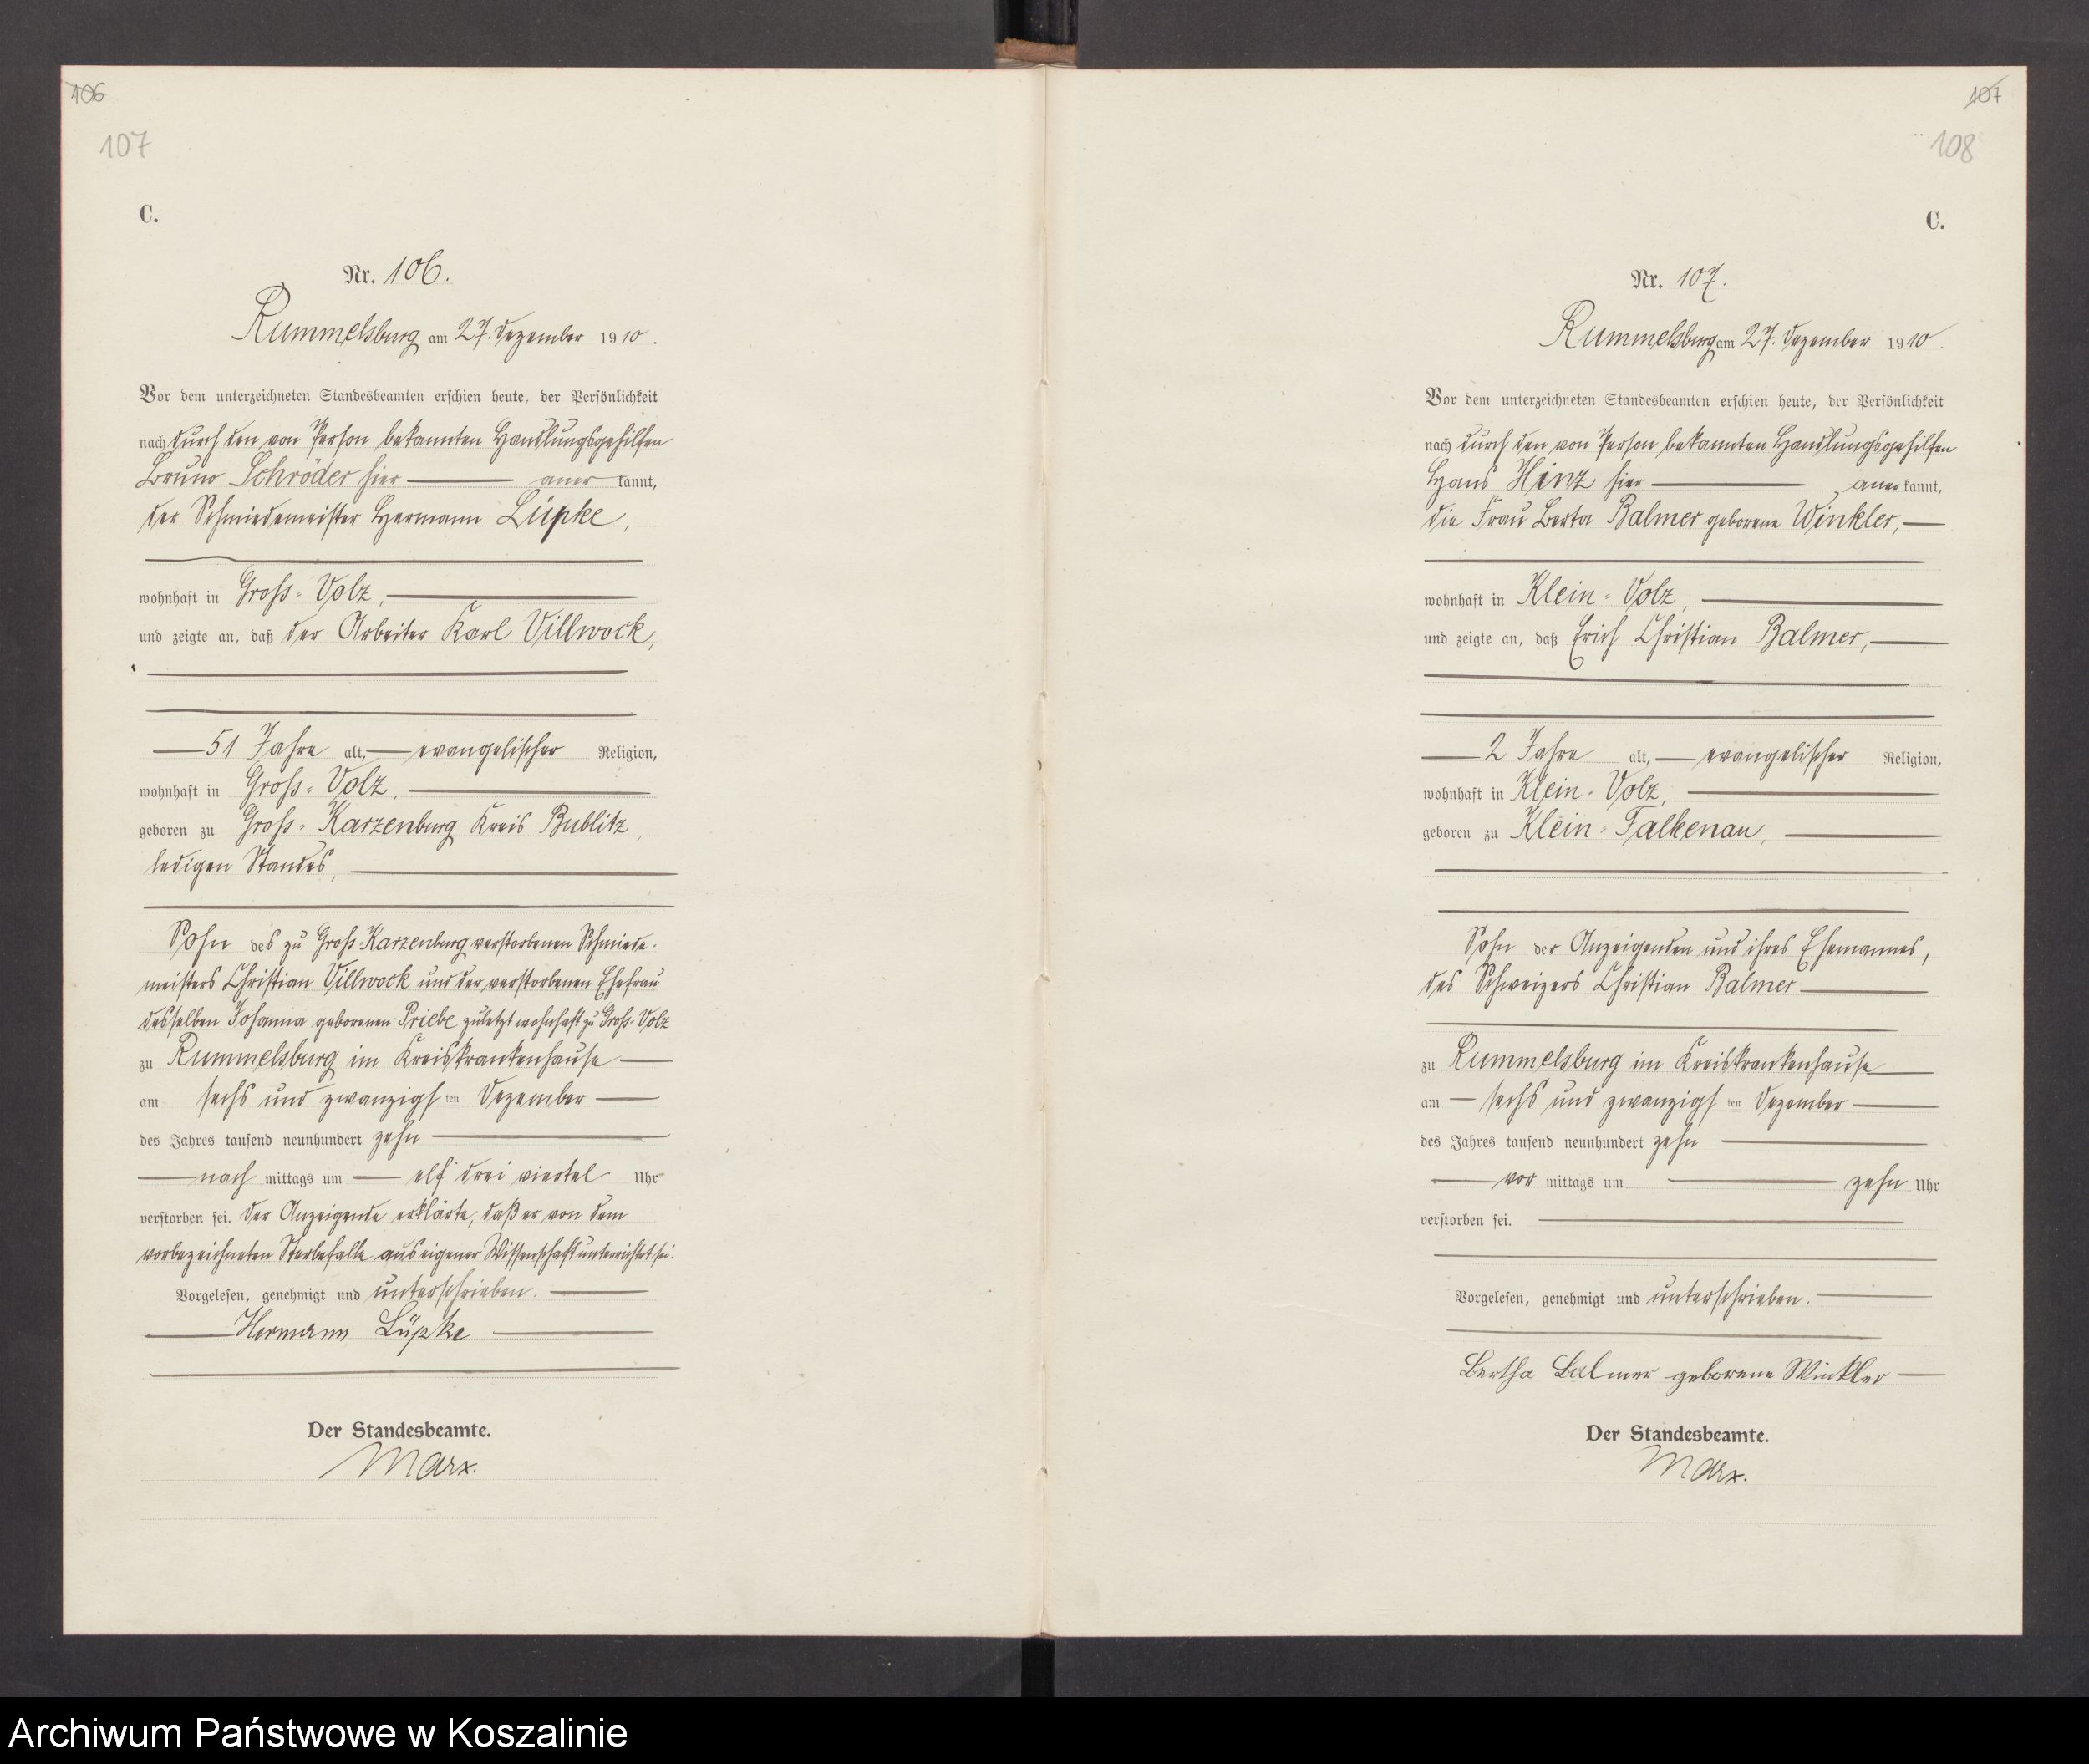 106
107
C.
Nr. 106.
Rummelsburg am 27. Dezember 1910.
Vor dem unterzeichneten Standesbeamten erschien heute, der Persönlichkeit
nach durch den von Person bekannten Handlungsgehilfen
Bruno Schröder hier aner kannt,
der Schmiedemeister Hermann Lüpke,
wohnhaft in Gross-Volz,
und zeigte an, daß der Arbeiter Karl Villwock,
51 Jahre alt, evangelischer Religion,
wohnhaft in Gross-Volz,
geboren zu Gross-Karzenburg Kreis Bublitz,
ledigen Standes,
Sohn des zu Gross-Karzenburg verstorbenen Schmiede-
meisters Christian Villwock und der verstorbenen Ehefrau
desselben Johanna geborenen Priebe zuletzt wohnhaft zu Gross-Volz
zu Rummelsburg im Kreiskrankenhause
am sechs und zwanzigsten Dezember
des Jahres tausend neunhundert zehn
nach mittags um elf drei viertel Uhr
verstorben sei. Der Anzeigende erklärte, daß er von dem
vorbezeichneten Sterbefalle aus eigener Wissenschaft unterrichtet sei.
Vorgelesen, genehmigt und unterschrieben.
Hermann Lüpke
Der Standesbeamte.
Marx.
107
108
C.
Nr. 107.
Rummelsburg am 27. Dezember 1910.
Vor dem unterzeichneten Standesbeamten erschien heute, der Persönlichkeit
nach durch den von Person bekannten Handlungsgehilfen
Hans Hinz hier aner kannt,
die Frau Berta Balmer geborene Winkler,
wohnhaft in Klein-Volz,
und zeigte an, daß Erich Christian Balmer,
2 Jahre alt, evangelischer Religion,
wohnhaft in Klein-Volz,
geboren zu Klein-Falkenau,
Sohn der Anzeigenden und ihres Ehemannes,
des Schweizers Christian Balmer
zu Rummelsburg im Kreiskrankenhause
am sechs und zwanzigsten Dezember
des Jahres tausend neunhundert zehn
vor mittags um zehn Uhr
verstorben sei.
Vorgelesen, genehmigt und unterschrieben.
Bertha Balmer geborene Winkler
Der Standesbeamte.
Marx.
Archiwum Państwowe w Koszalinie